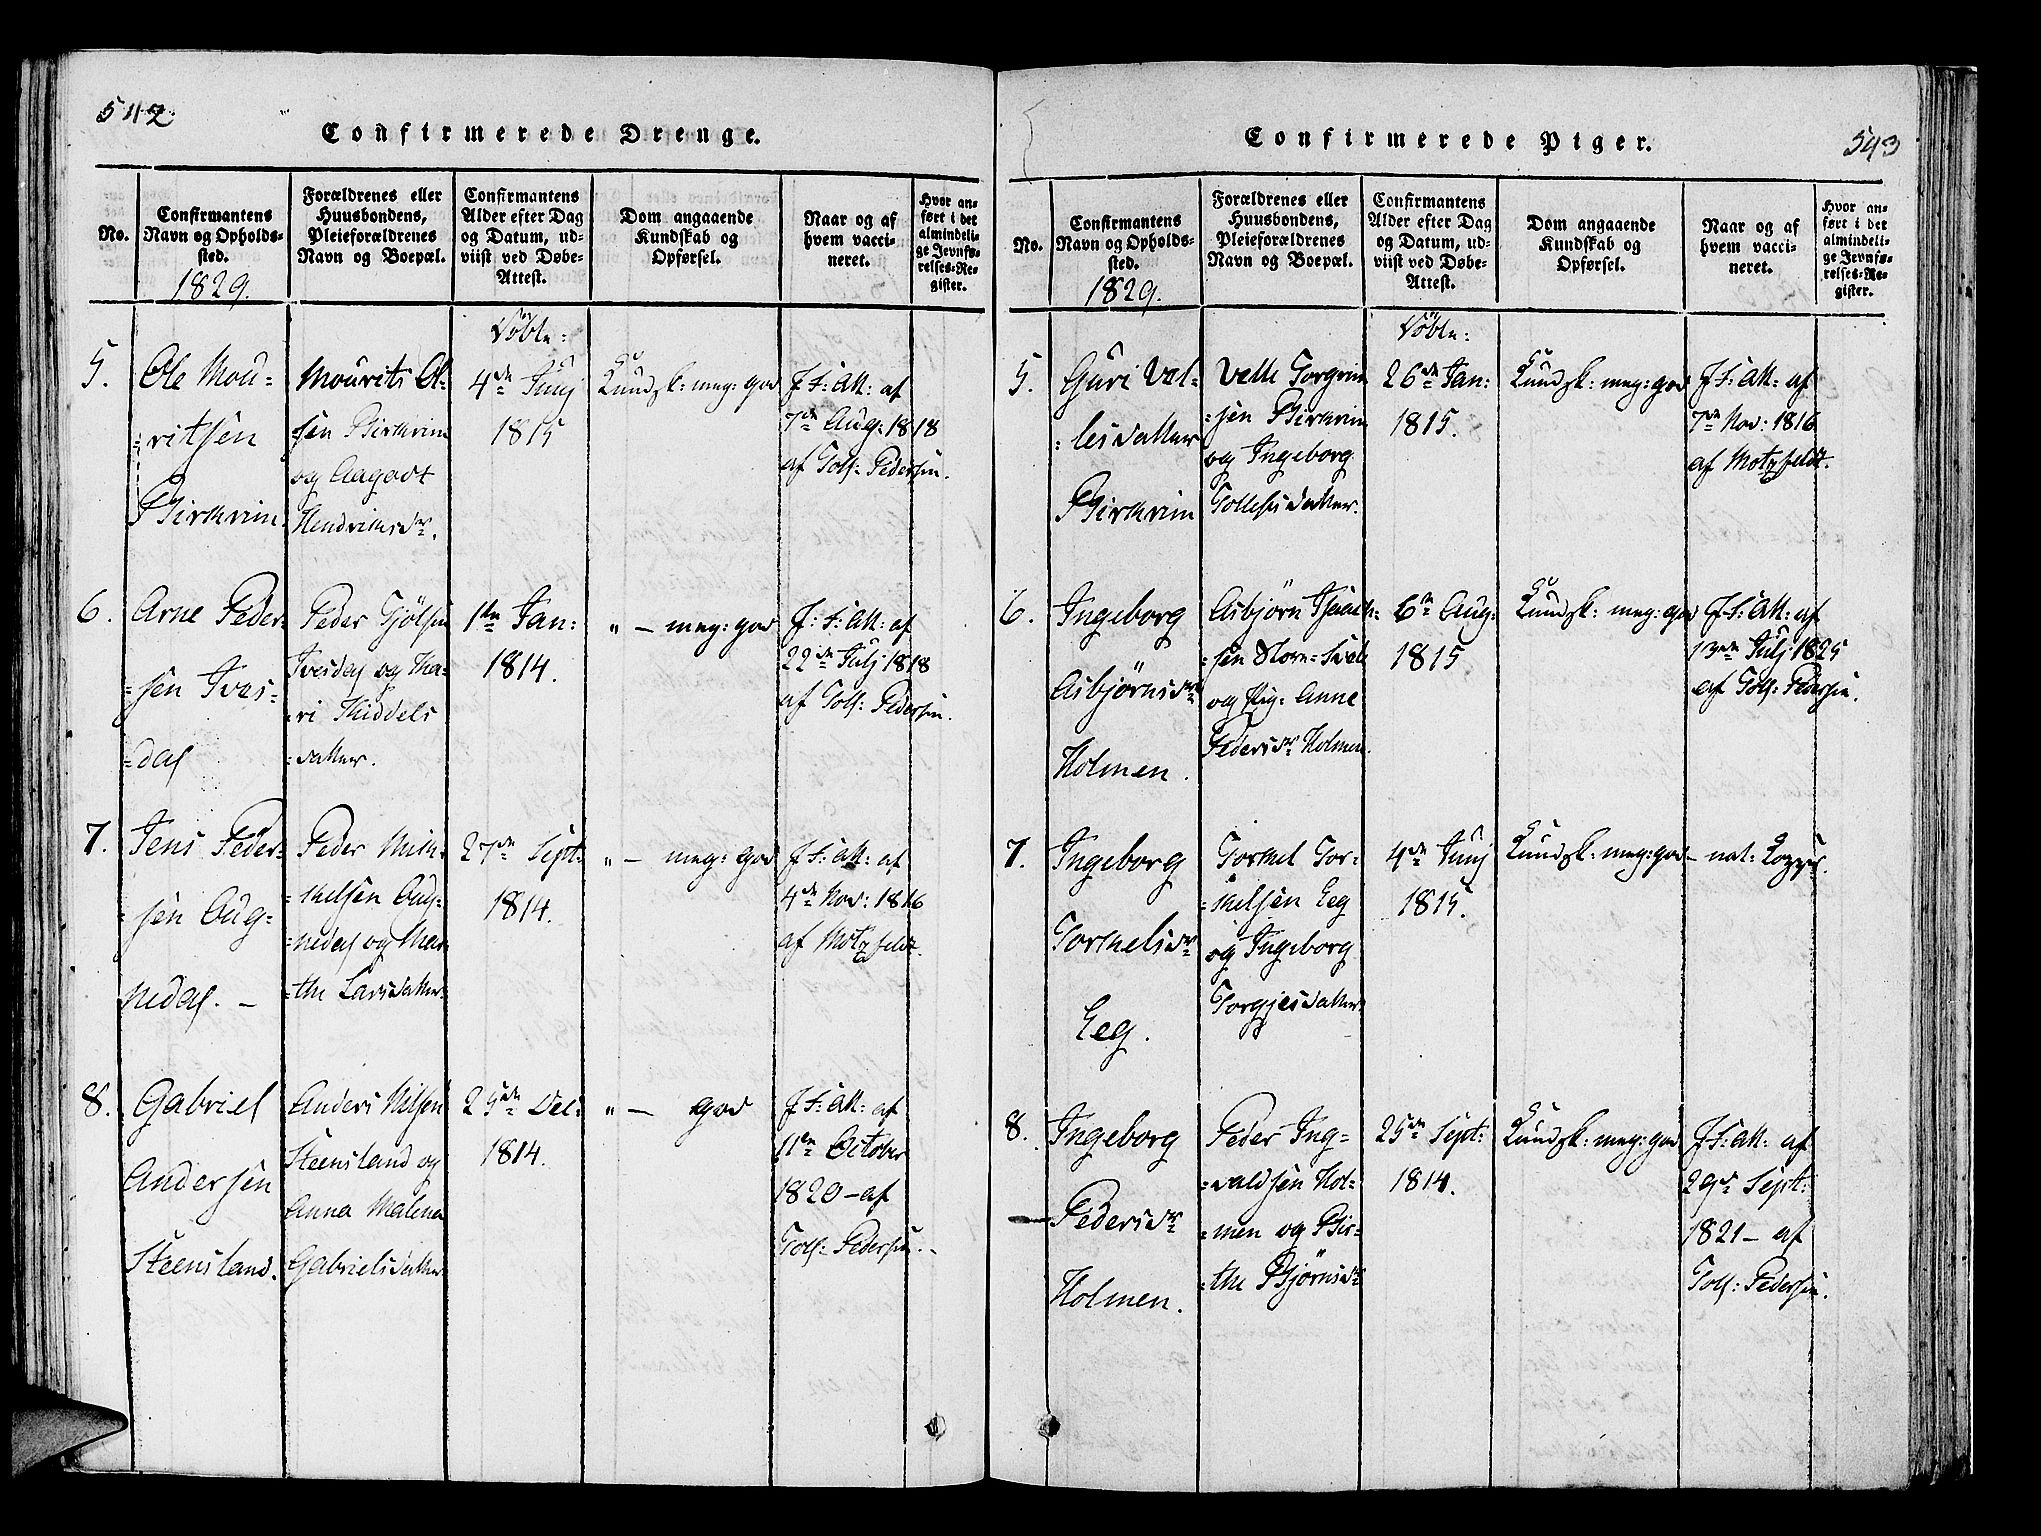 542.
Confirmerede Drenge.
No.
Confirmantens
Navn og Opholds-
sted.
1829.
Forældrenes eller
Huusbondens,
Pleieforældrenes
Navn og Boepæl.
Confirmantens
Alder efter Dag
og Datum, ud-
viist ved Døbe-
Attest.
Dom angaaende
Kundskab og
Opførsel.
Naar og af
hvem vacci-
neret.
Hvor an-
ført i det
almindeli-
ge Jevnfø-
relses-Re-
gister.
5.
Ole Mou-
=ritsen
Birkrim.
Mourits Ol-
sen Birkrim
og Aagodt
Hendriksdr.
Døbte:
4de Junj
1815
Kundsk: meg: god
J F: att: af
7de Aug: 1818
af Toll: Pedersen.
6.
Arne Peder-
=sen Ives-
=dal
Peder Tjølsen
Ivesdal og Ka-
=ri Kiddels
=datter.
1ste Jan:
1814.
" — meg: god
J: F: att: af
22de Julj 1818
af Toll: Pedersen.
7.
Jens Peder-
=sen Oug-
nedal. —
Peder Mik-
=kelsen Oug-
=nedal og Mar
=the Larsdatter.
27de Sept:
1814.
" — meg: god
J F: att: af
4de Nov: 1816
af Motzfeldt.
8.
Gabriel
Andersen
Steensland.
Anders Nilsen
Steensland og
Anna Malena
Gabrielsdatter
25de Dec:
1814.
" — god
J F: att: af
11te October
1820 — af
Toll: Pedersen.
543
Confirmerede Piger.
No.
Confirmantens
Navn og Opholds-
sted.
1829.
Forældrenes eller
Huusbondens,
Pleieforældrenes
Navn og Boepæl.
Confirmantens
Alder efter Dag
og Datum, ud-
viist ved Døbe-
Attest.
Dom angaaende
Kundskab og
Opførsel.
Naar og af
hvem vacci-
neret.
Hvor an-
ført i det
almindeli-
ge Jevnfø-
relses-Re-
gister.
5.
Guri Vel-
=lesdatter
Birkrim
Velle Torgrim
=sen Birkrim
og Ingeborg
Tollefsdatter.
Døbte:
26de Jan:
1815.
Kundsk: meg: god
J F: att: af
7de Nov: 1816
af Motzfeldt.
6.
Ingeborg
Asbjørnsdr
Holmen.
Asbjørn
=sen Store=Svele
og Pig: Anne
Pedersdr Holmen.
6te Aug:
1815
Kundsk: meg: god
J F: att: af
13de Julj 1825
af Toll: Pedersen.
7.
Ingeborg
Torkelsdr
Eeg.
Torkel Tor-
=kelsen Eeg
og Ingeborg
Torgjesdatter.
4de Junj
1815.
Kundsk: meg: god
— nat: Kopper.
8.
Ingeborg
— Pedersdr
Holmen.
Peder Ing=
=valdsen Hol=
=men og Bir-
=the Bjørnsdr
25de Sept:
1814.
Kundsk: meg: god
J F: att: af
29de Sept:
1821 — af
Toll: Pedersen.